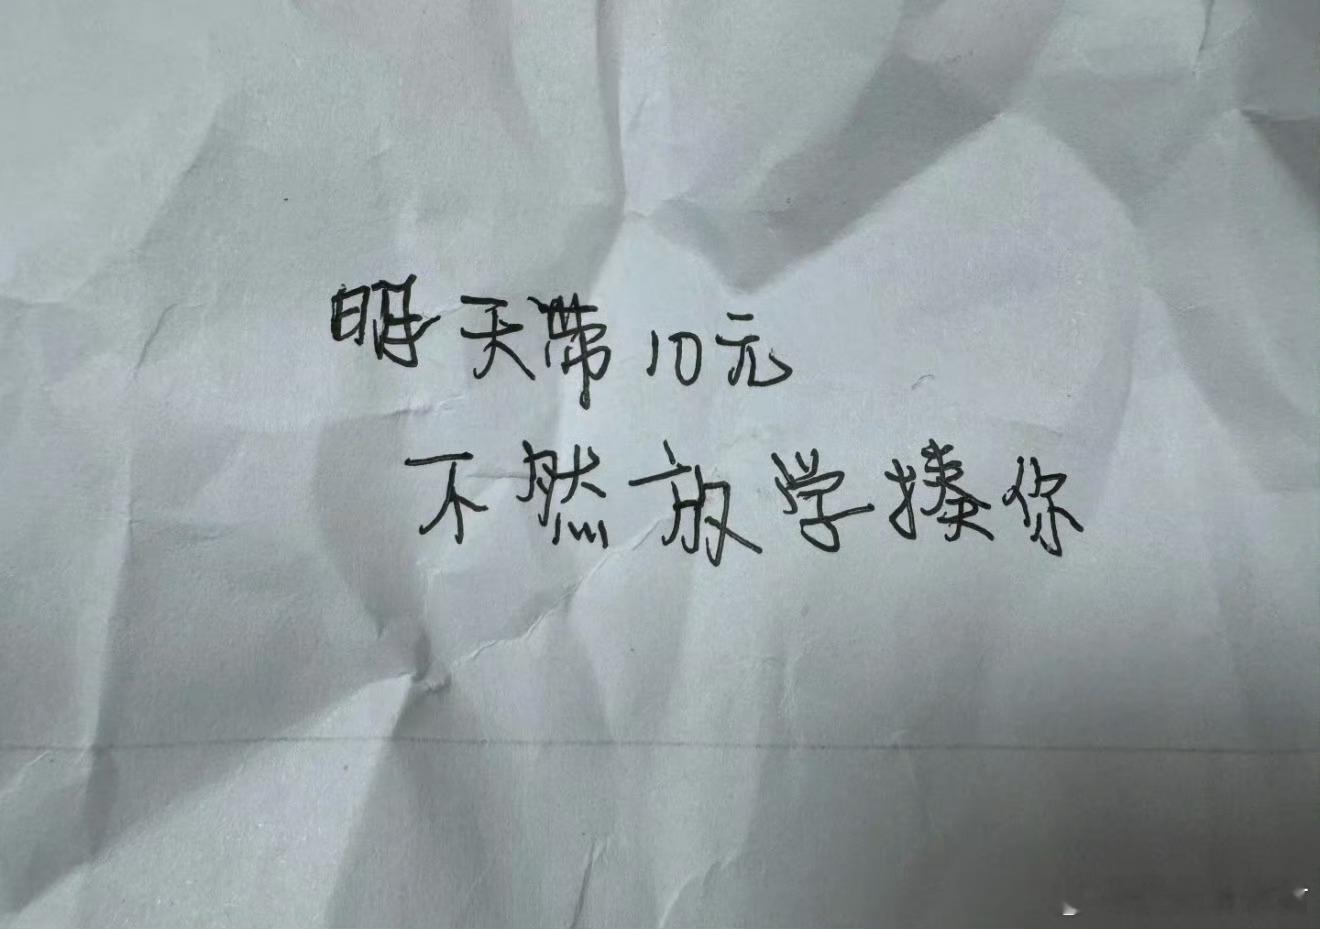 明天带10元
不然放学揍你